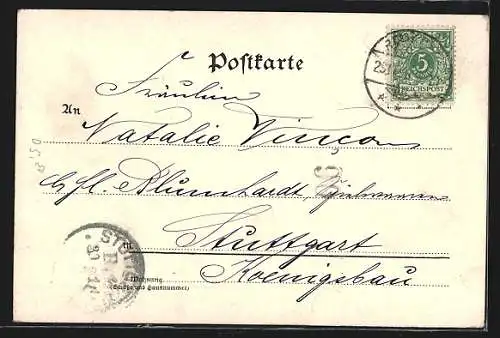 Postkarte
5
REICHSPOST
Fräulein
An
Natalie Vinçon
Blumhardt,
Stuttgart
Koenigsbau
Wohnung
(Straße und Hausnummer)